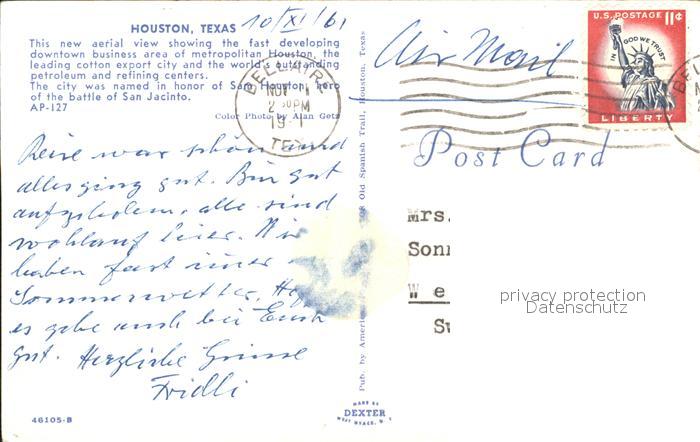 HOUSTON, TEXAS 10/XI/61
This new aerial view showing the fast developing
downtown business area of metropolitan Houston, the
leading cotton export city and the world's outstanding
petroleum and refining centers.
The city was named in honor of Sam Houston, hero
of the battle of San Jacinto.
AP-127
Color Photo by Alan Getz
BELLAIRE
NOV 1
2 PM
TEX
Reise war schön und
alles ging gut. Bin gut
aufgehoben, alle sind
wohlauf hier. Wir
haben fast immer
Sommerwetter.
es gehe auch bei Euch
gut. Herzliche Grüsse
Fridli
46105-B
Old Spanish Trail, Houston, Texas
Pub. by America
MADE BY
DEXTER
WEST NYACK, N.Y.
Air Mail
U.S. POSTAGE 11¢
IN GOD WE TRUST
LIBERTY
Post Card
Mrs.
Son
We
Sw
privacy protection
Datenschutz